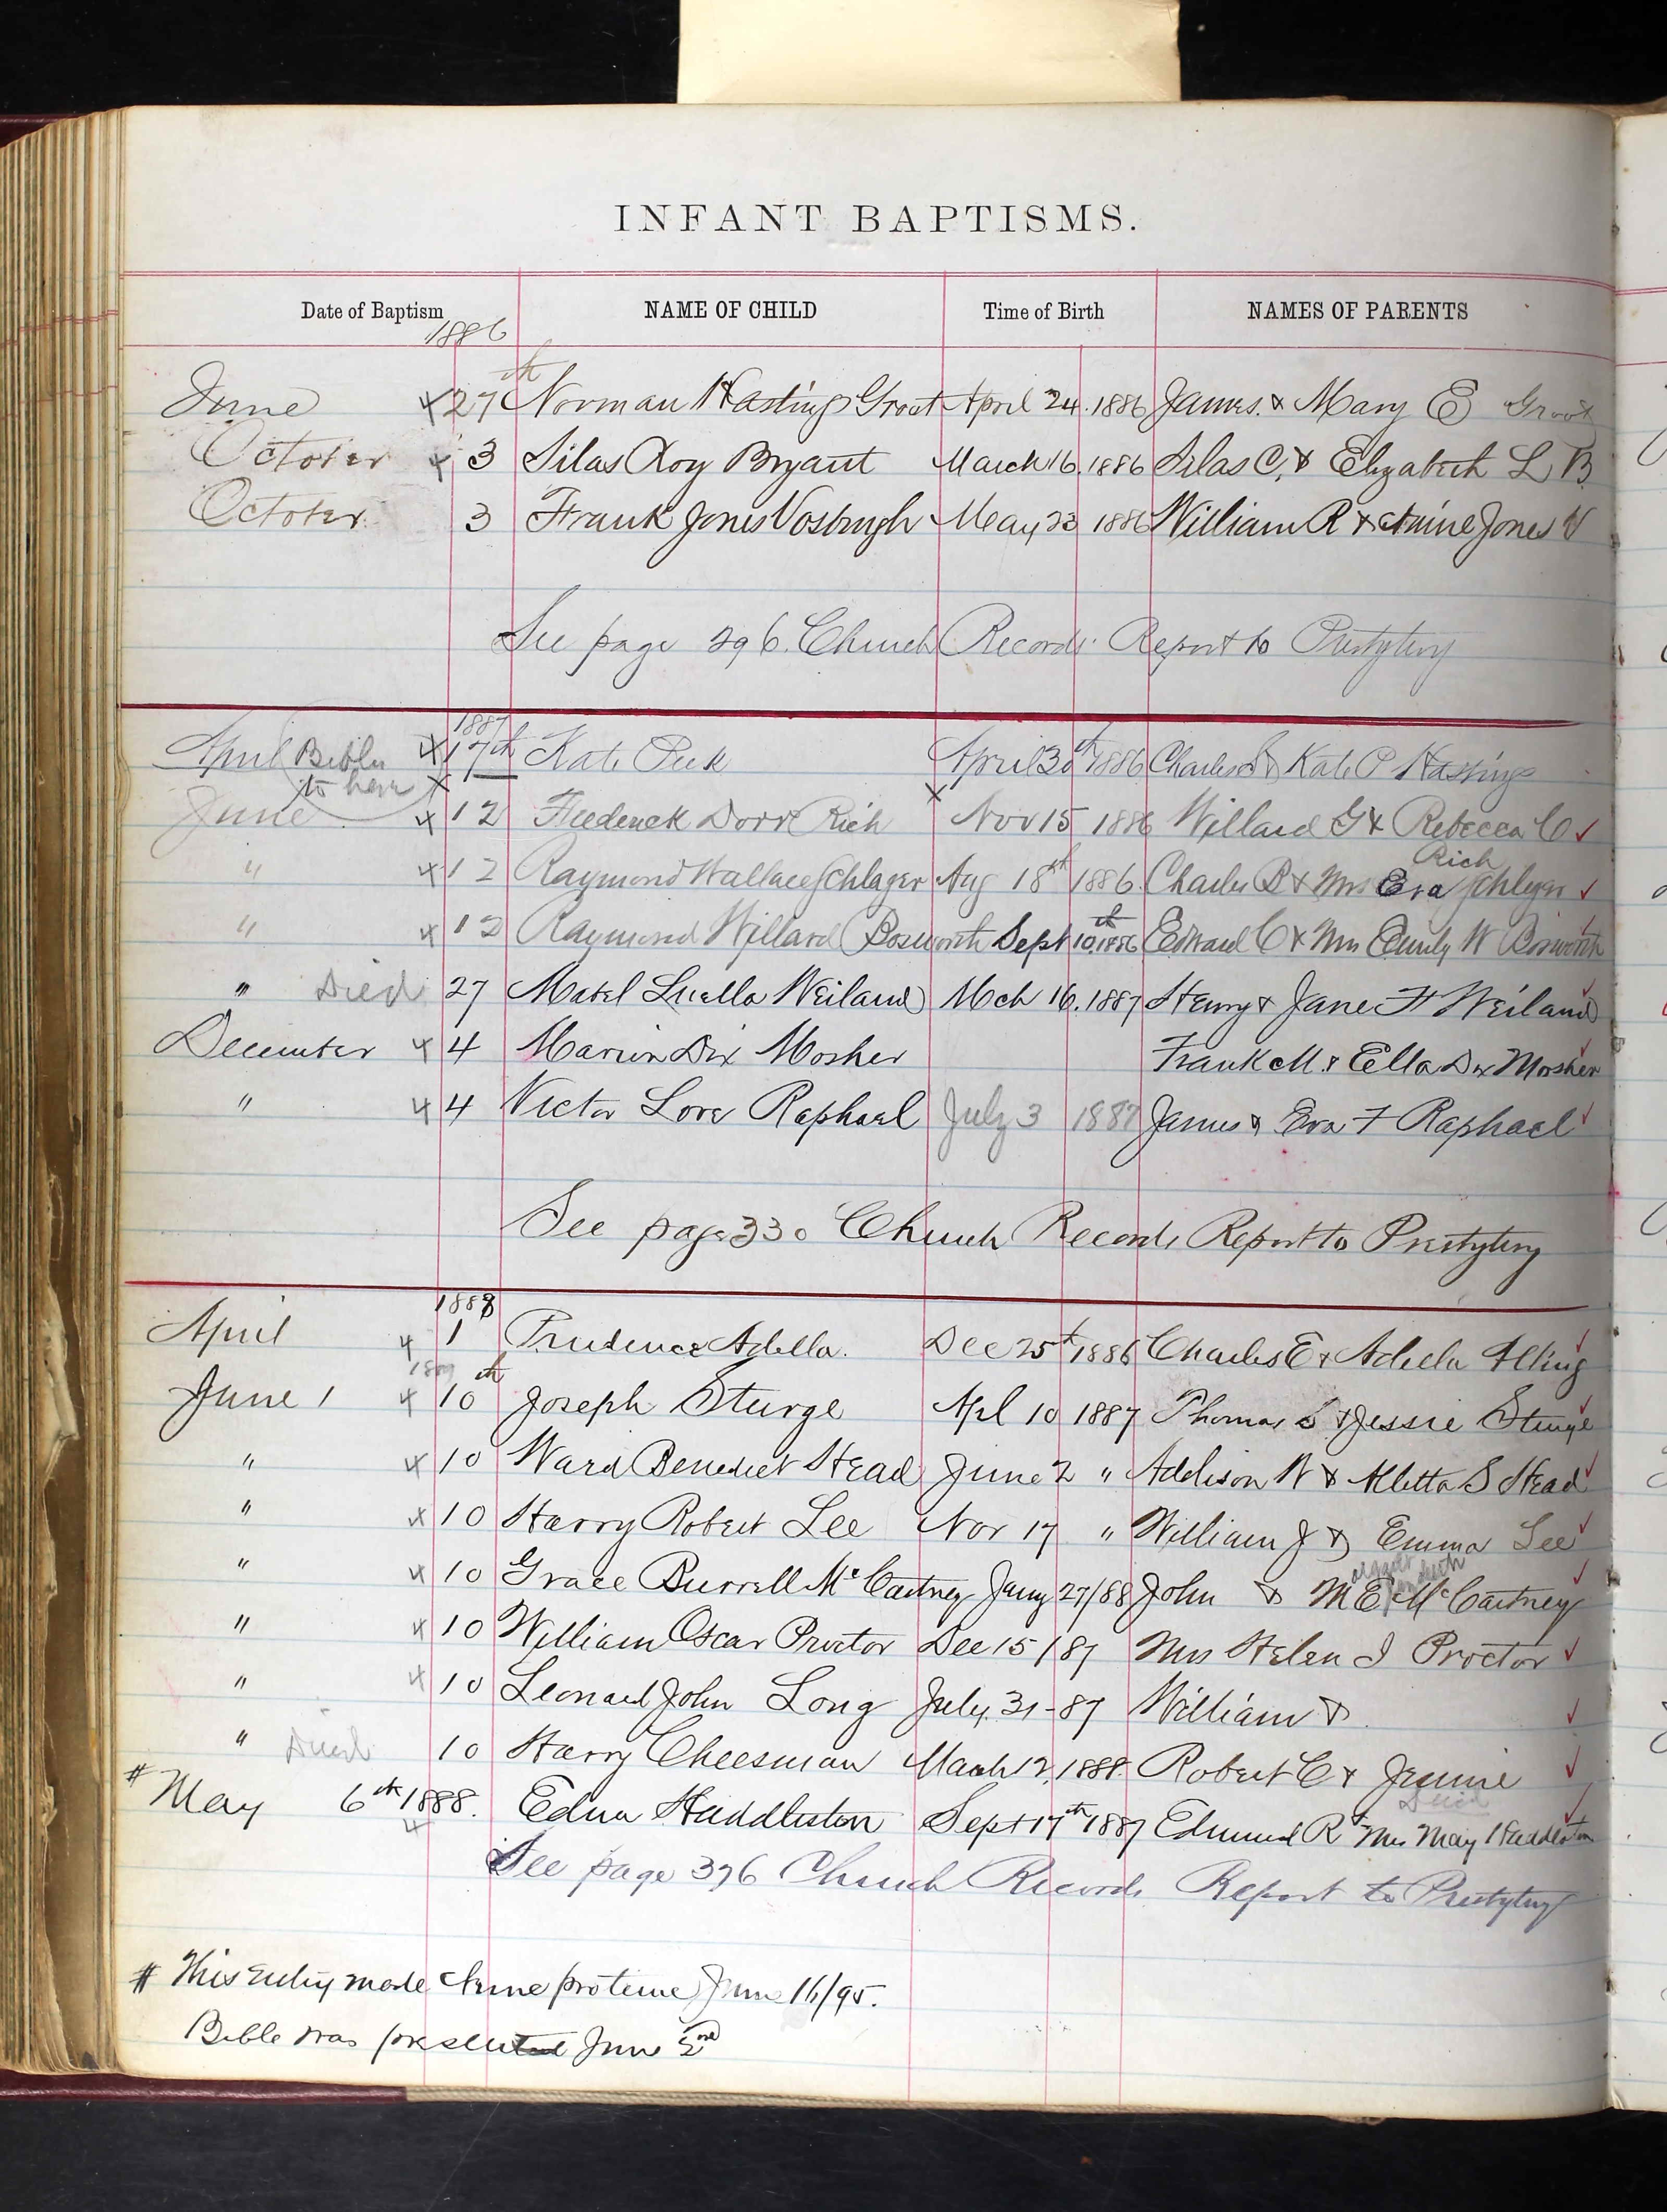 INFANT BAPTISMS.
Date of Baptism NAME OF CHILD Time of Birth NAMES OF PARENTS
1886
June 27th Norman Hastings Groot April 24. 1886 James. & Mary E Groot
October 3 Silas Roy Bryant March 16. 1886 Silas C. & Elizabeth L B.
October. 3 Frank Jones Vosburgh May 23 1886 William R & Annie Jones V
See page 296. Church Records Report to Presbytery
1887
April Bibles to here 17th Kate Peck April 30th 1886 Charles & Kate P Hastings
June 12 Frederick Dorr Rich Nov 15 1886 Willard G & Rebecca C Rich
" 12 Raymond Wallace Schlager Aug 18th 1886. Charles B & Mrs Eva Schlager
" 12 Raymond Willard Bosworth Sept 10th 1886 Edward C & Mrs Emily W Bosworth
" Died 27 Mabel Luella Weiland Mch 16. 1887 Henry & Jane H Weiland
December 4 Marion Dix Mosher Frank M. & Ella Dix Mosher
" 4 Victor Love Raphael July 3 1887 James & Eva F Raphael
See page 330 Church Records Report to Presbytery
1888
April 1 Prudence Adella. Dec 25th 1886 Charles E & Adella Alling
June 1 10th Joseph Sturge Apl 10 1887 Thomas & Jessie Sturge
" 10 Ward Benedict Head June 2 " Addison W & Aletta S Head
" 10 Harry Robert Lee Nov 17 " William J & Emma Lee
" 10 Grace Burrell McCartney Jany 27/88 John & M E McCartney
" 10 William Oscar Proctor Dec 15/87 Mrs Helen I Proctor
" 10 Leonard John Long July. 31-87 William &
" Died 10 Harry Cheesman March 12, 1888. Robert C & Jennie
Died
# May 6th 1888. Edna Huddleston Sept 17th 1887 Edmund R & Mrs May Huddleston
See page 376 Church Records Report to Presbytery
# This entry made nunc pro tunc June 16/95.
Bible was presented June 2nd